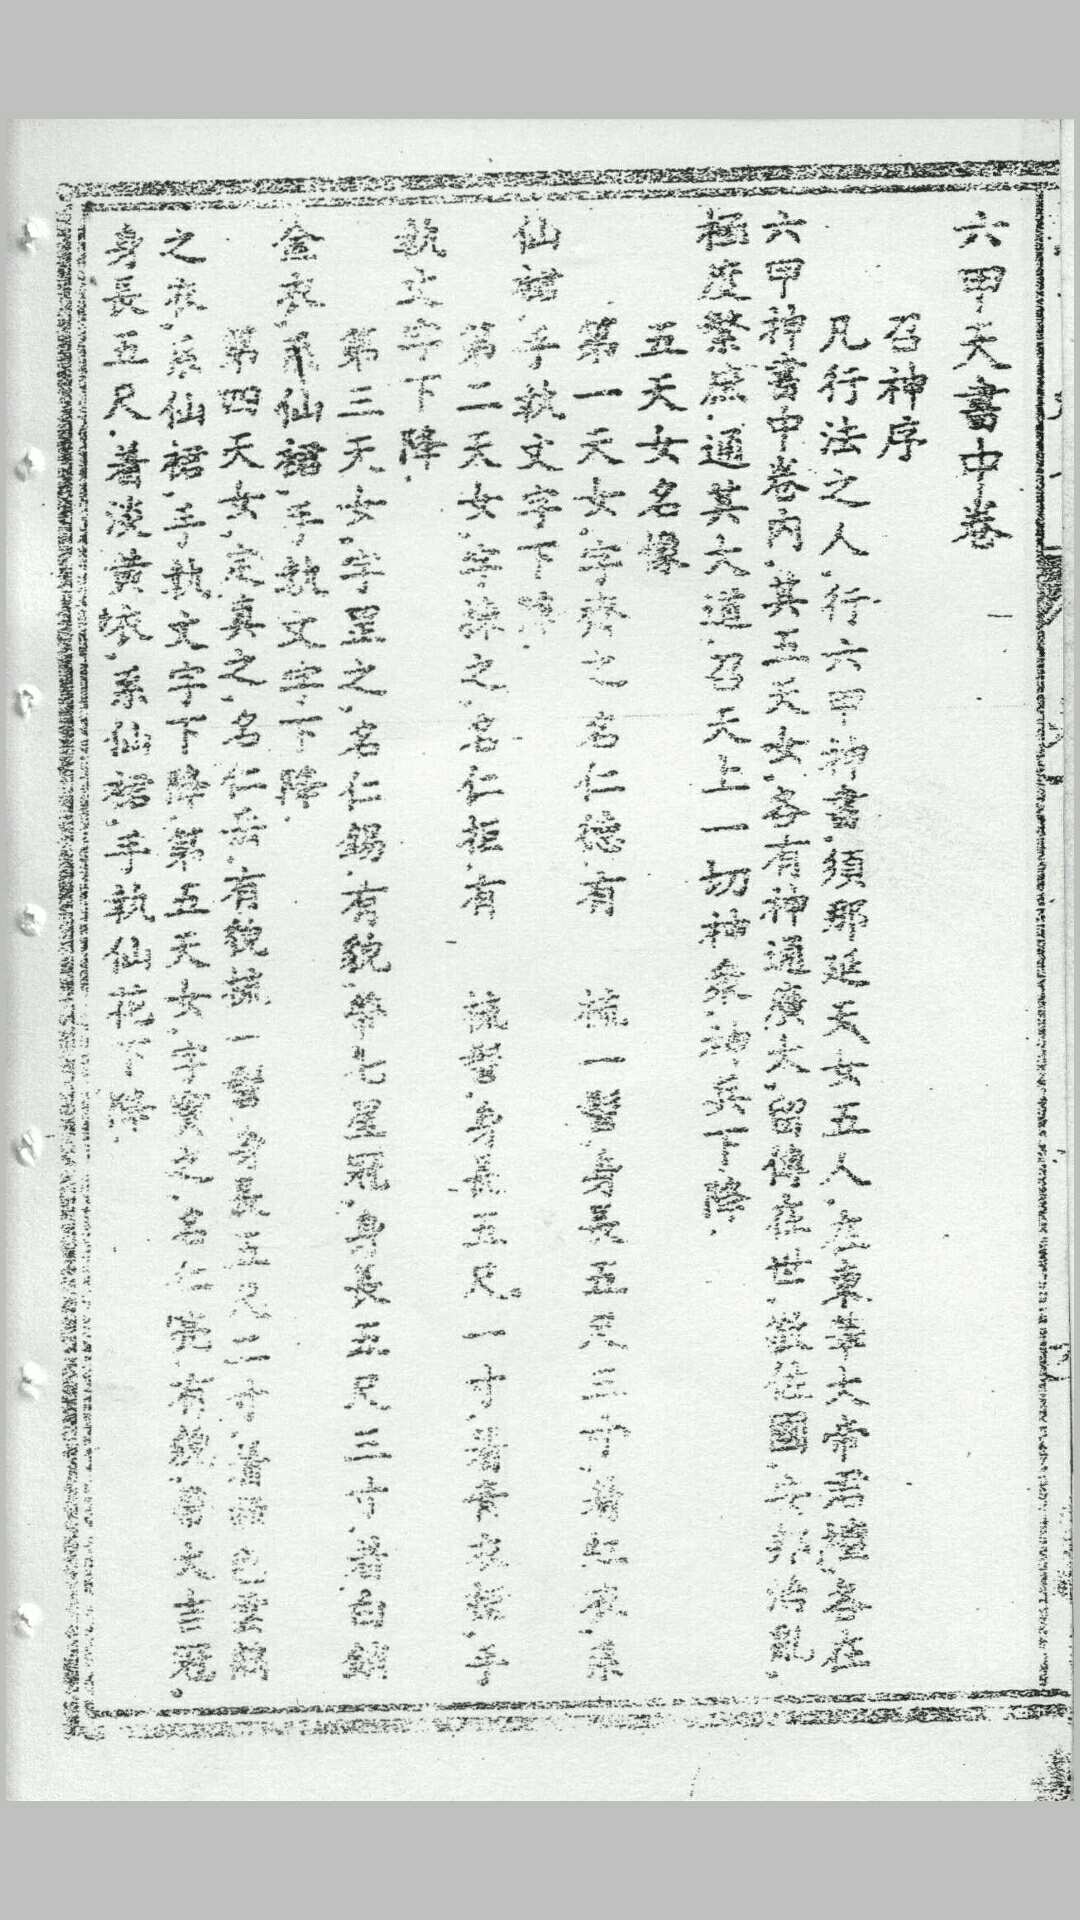 六甲天書中卷
召神序
凡行法之人.行六甲神書.須那延天女五人.在東華大帝君壇.各在
六甲神書中卷內.其五天女.各有神通廣大.留傳在世.救佐國治亂.
極度眾庶.通其大道.召天上一切神眾.神兵下降.
五天女名楾
第一天女.字齊之名仁德有 梳一髻.身長五尺三寸.著紅衣.系
仙裙.手執文字下降.
第二天女.字妹之.名仁拒.有 梳髻.身長五尺一寸.著青衣裙.手
執文字下降.
第三天女.字星之.名仁錫.有貌.帶七星冠.身長五尺三寸.著色
金衣.系仙裙.手執文字下降.
第四天女.定真之.名仁.有貌.梳一髻.身長五尺二寸.著色
之衣.系仙裙.手執文字下降.第五天女.字實之.名仁亮.有貌.帶大吉冠.
身長五尺.著淡黃衣.系仙裙.手執仙花下降.